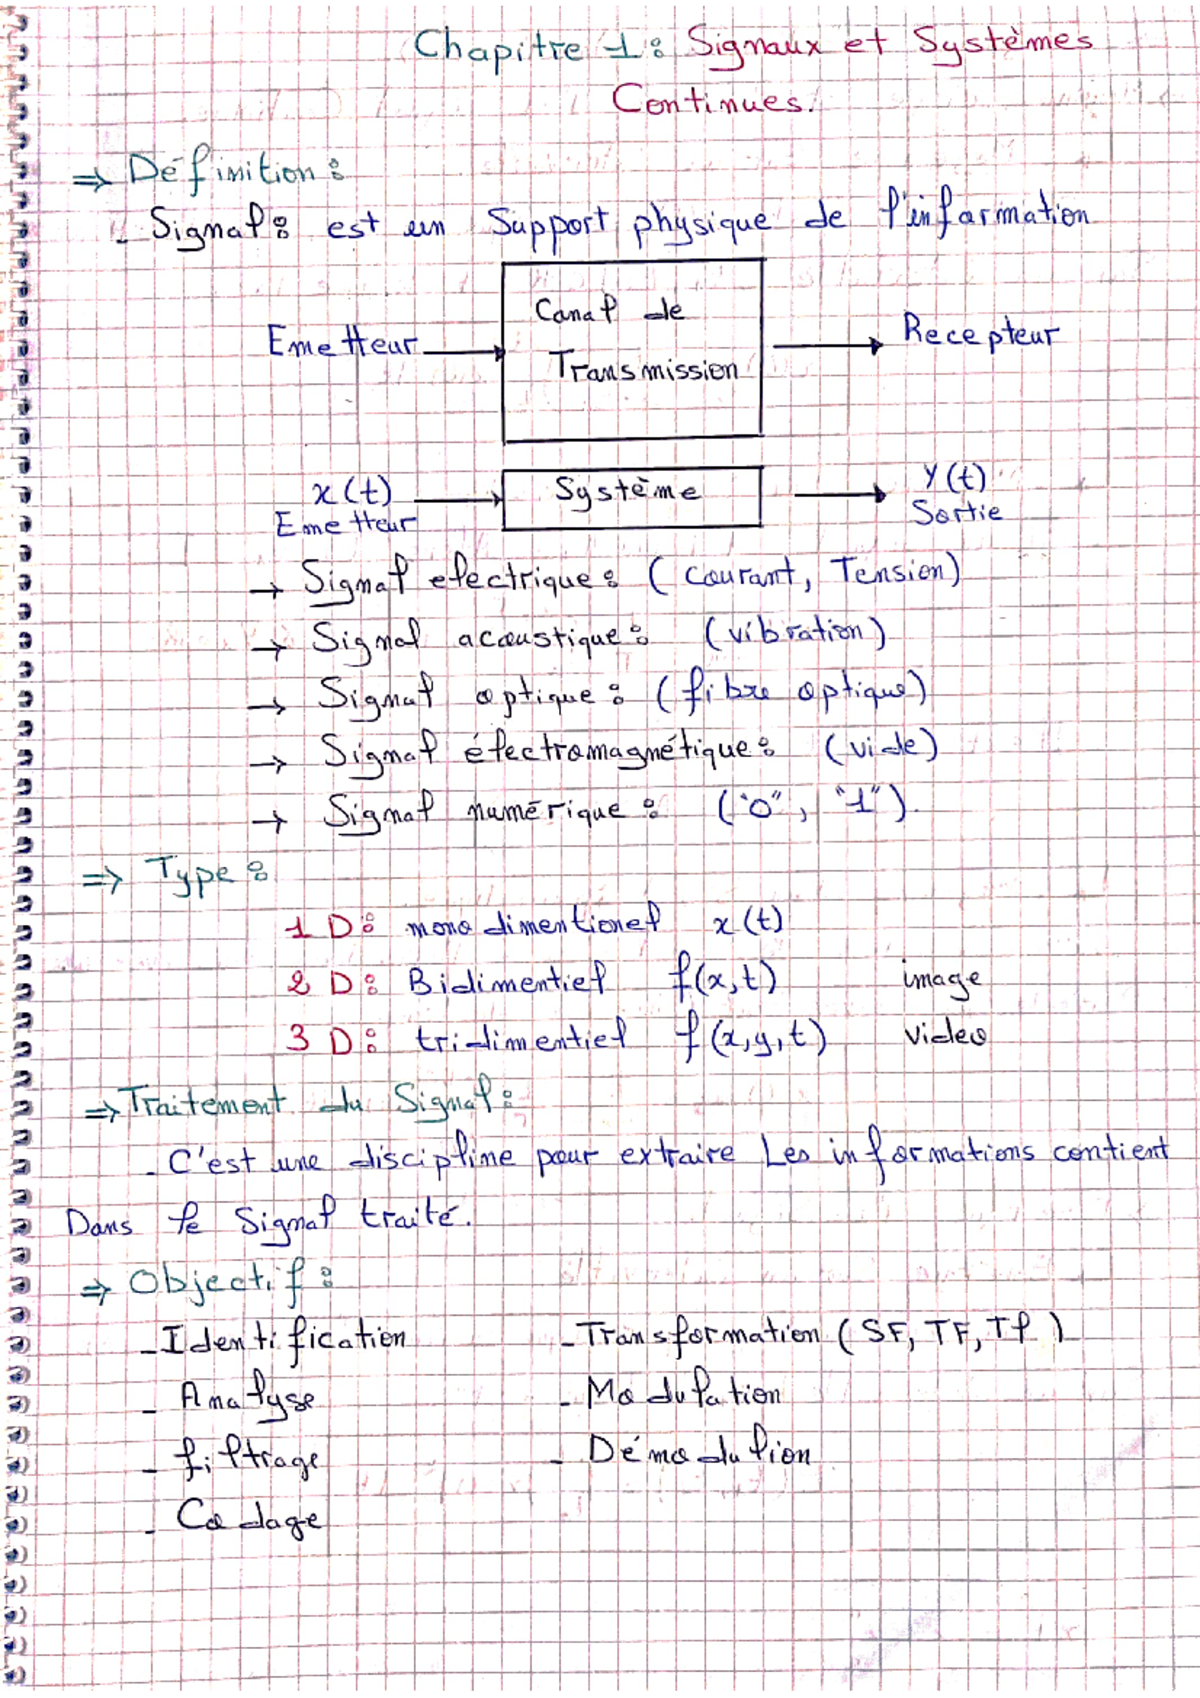 Chapitre 1: Signaux et Systèmes
Continues.
⇒ Définition:
- Signal: est un Support physique de l'information
Emetteur → Canal de Transmission → Recepteur
x(t) → Système → y(t)
Emetteur Sortie
→ Signal electrique: (courant, Tension)
→ Signal acoustique: (vibration)
→ Signal optique: (fibre optique)
→ Signal électromagnétique: (vide)
→ Signal numérique: ("0", "1").
⇒ Type:
1 D: mono dimentionel x(t)
2 D: Bidimentiel f(x,t) image
3 D: tridimentiel f(x,y,t) video
⇒ Traitement du Signal:
- C'est une discipline pour extraire Les informations contient
Dans le Signal traité.
⇒ Objectif:
- Identification - Transformation (SF, TF, TL)
- Analyse - Modulation
- filtrage - Démodulion
- Codage